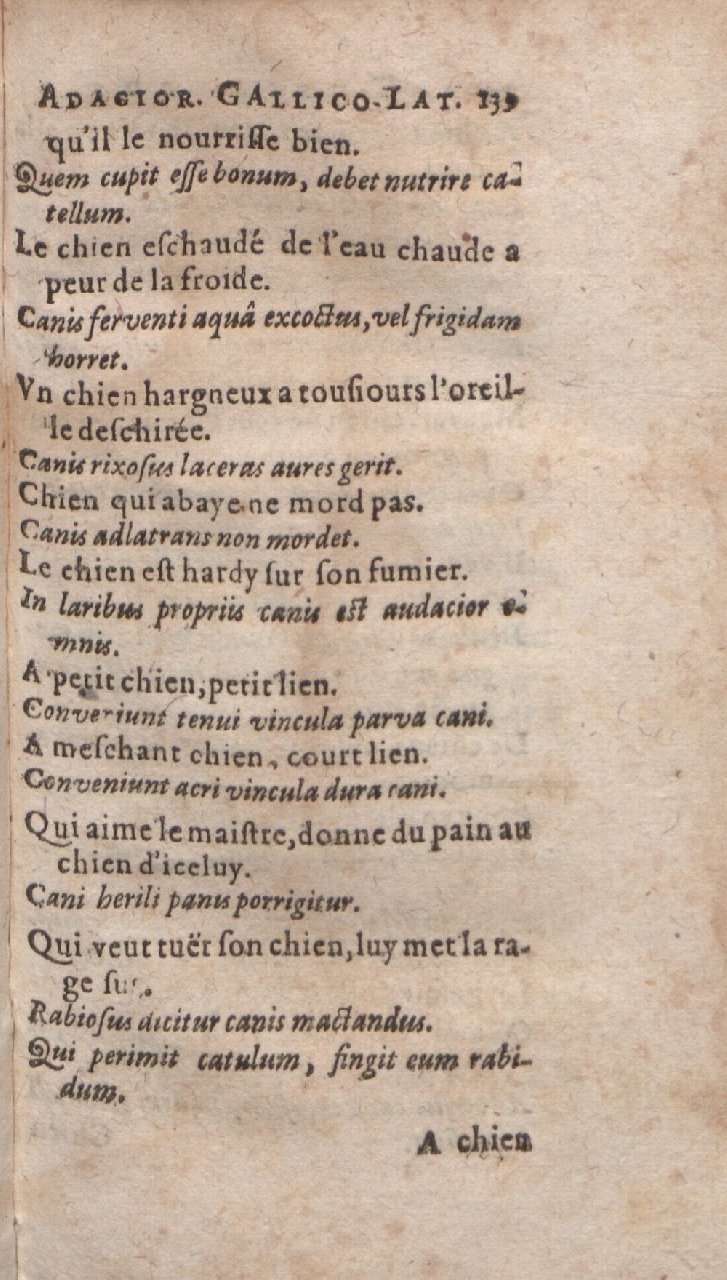 ADAGIOR. GALLICO-LAT. 139
qu'il le nourriſſe bien.
Quem cupit eſſe bonum, debet nutrire ca-
tellum.
Le chien eſchaudé de l'eau chaude a
peur de la froide.
Canis ferventi aquâ excoctus, vel frigidam
horret.
Vn chien hargneux a touſiours l'oreil-
le deſchirée.
Canis rixoſus laceras aures gerit.
Chien qui abaye ne mord pas.
Canis adlatrans non mordet.
Le chien eſt hardy ſur ſon fumier.
In laribus propriis canis eſt audacior o-
mnis.
A petit chien, petit lien.
Conveniunt tenui vincula parva cani.
A meſchant chien, court lien.
Conveniunt acri vincula dura cani.
Qui aime le maiſtre, donne du pain au
chien d'iceluy.
Cani herili panis porrigitur.
Qui veut tuër ſon chien, luy met la ra-
ge ſus.
Rabioſus dicitur canis mactandus.
Qui perimit catulum, fingit eum rabi-
dum.
A chien